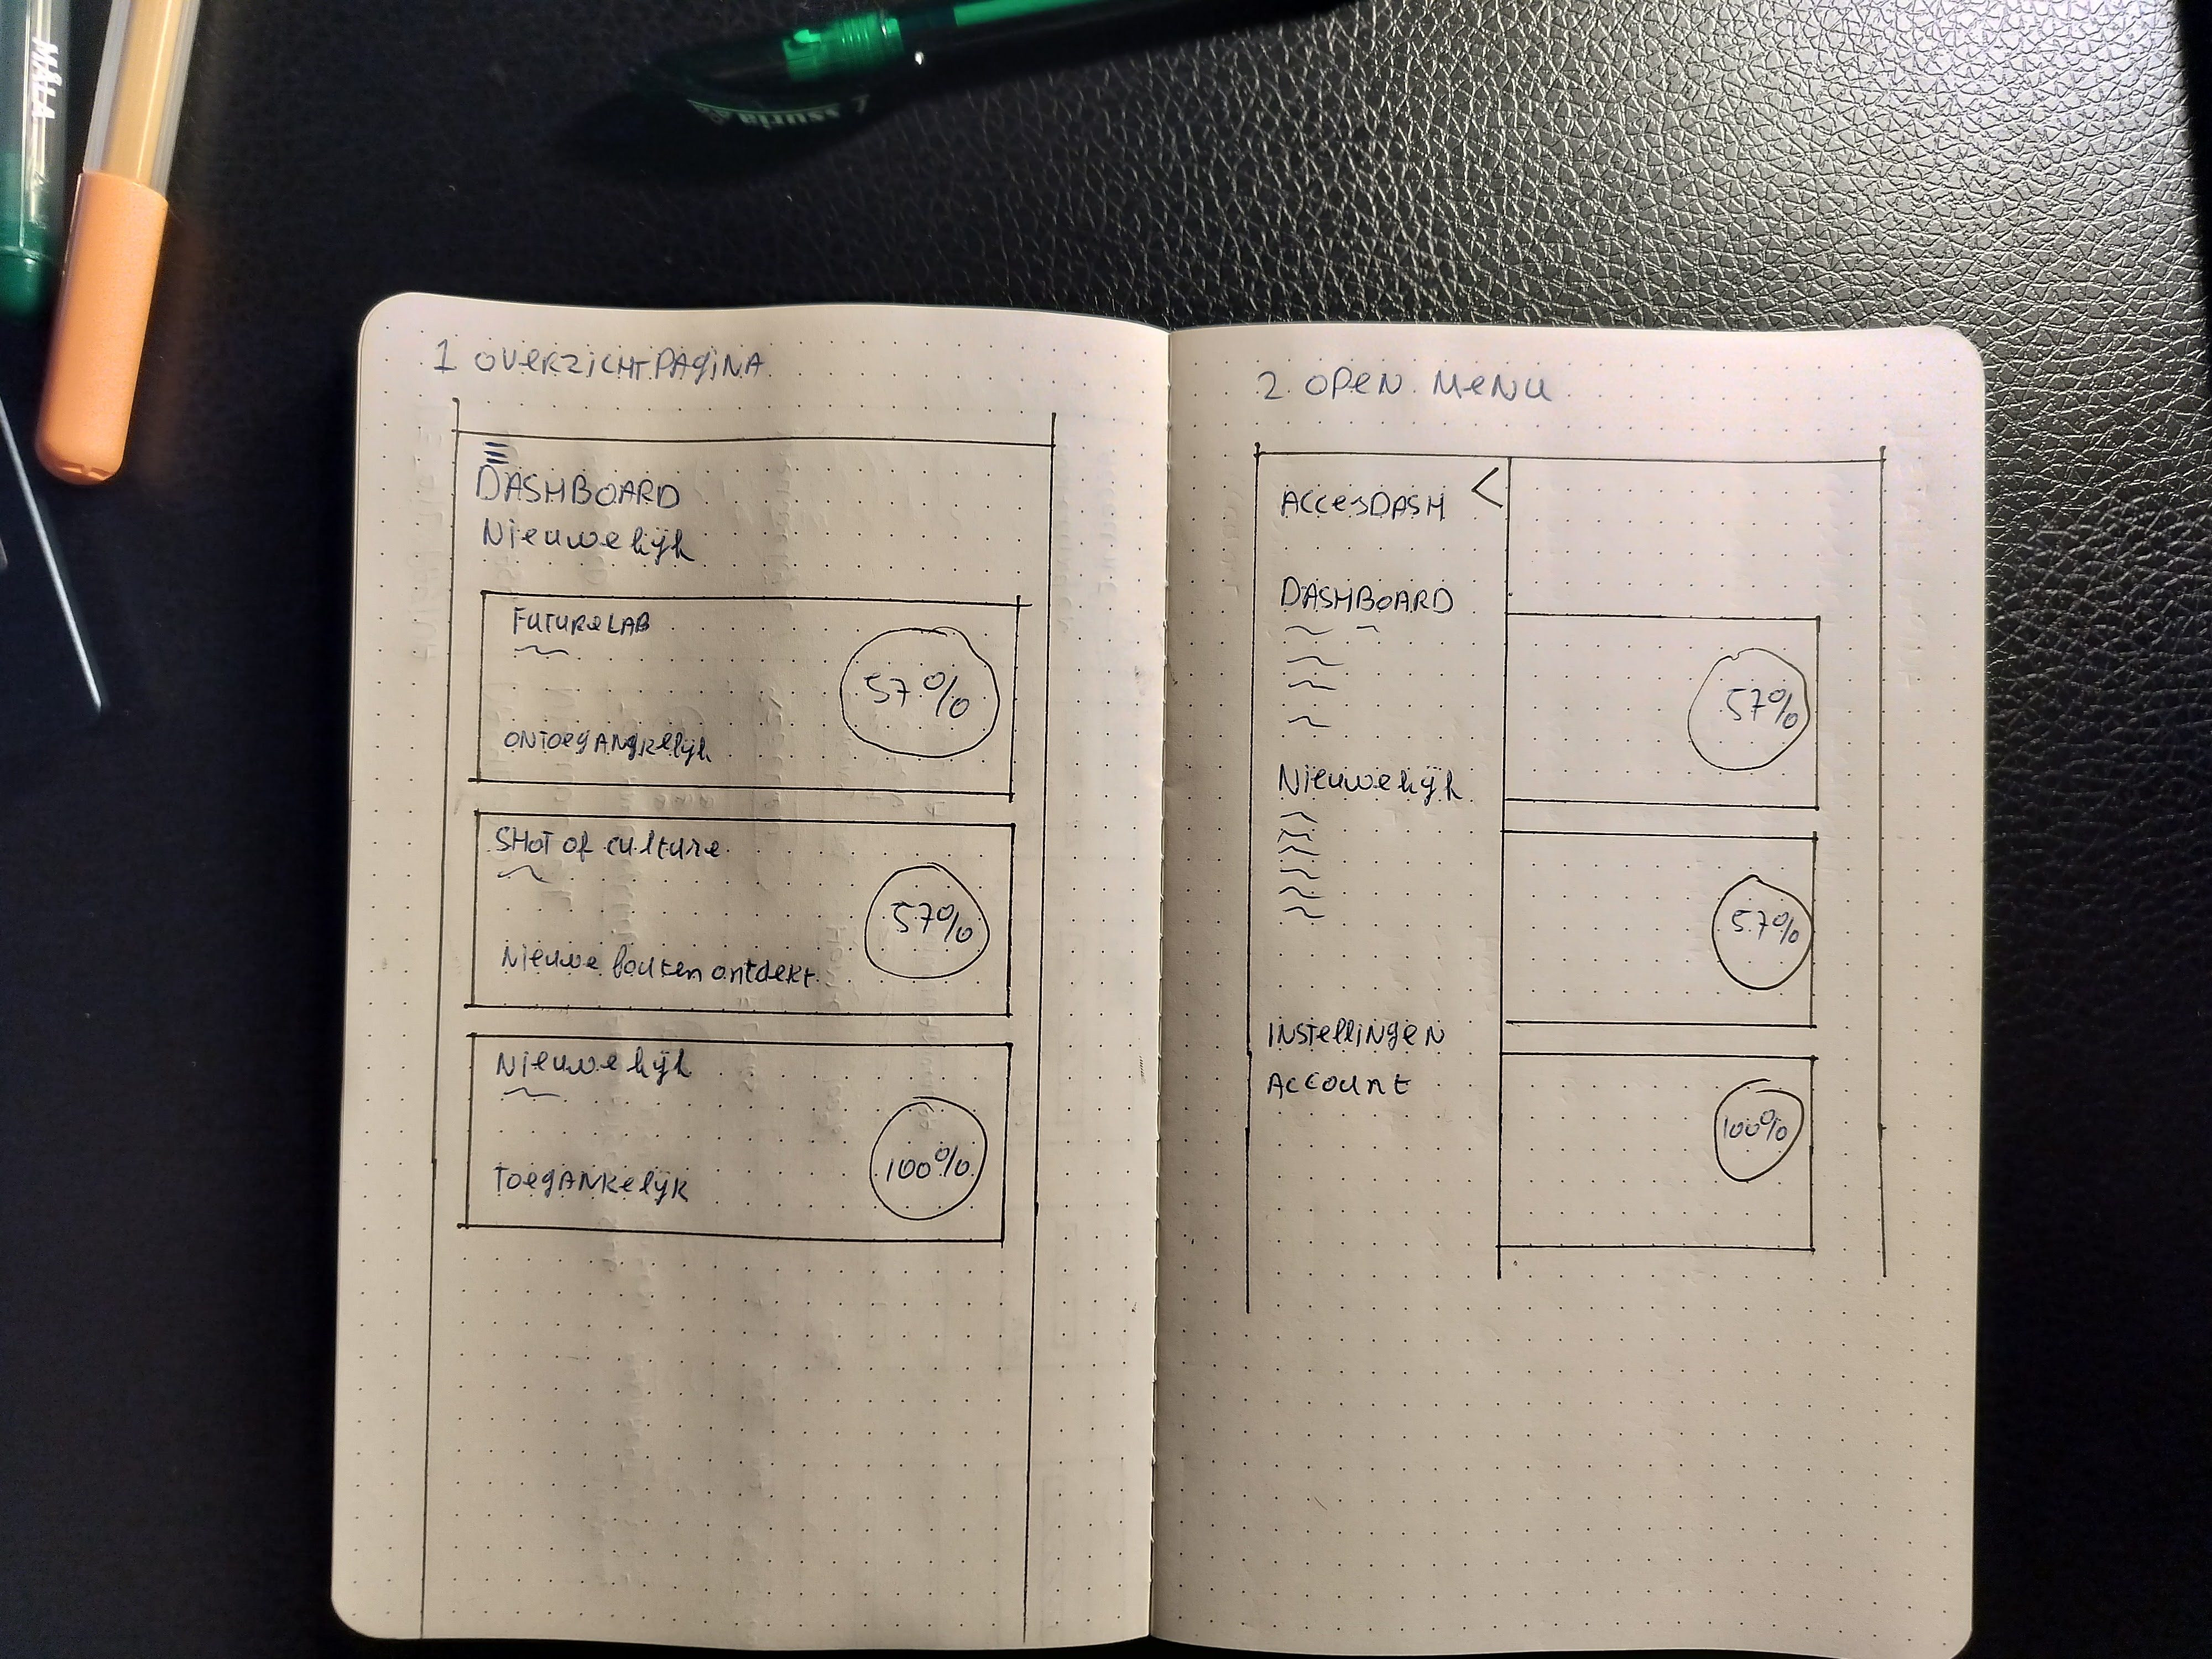 1 OVERZICHTPAGINA
DASHBOARD
Nieuwekijk
FUTURELAB
57%
ONTOEGANGKELIJK
SHOT OF CULTURE
57%
Nieuwe fouten ontdekt
Nieuwekijk
100%
TOEGANKELIJK
2 OPEN MENU
ACCESDASH <
DASHBOARD
57%
Nieuwekijk
57%
INSTELLINGEN
ACCOUNT
100%
MÅLA